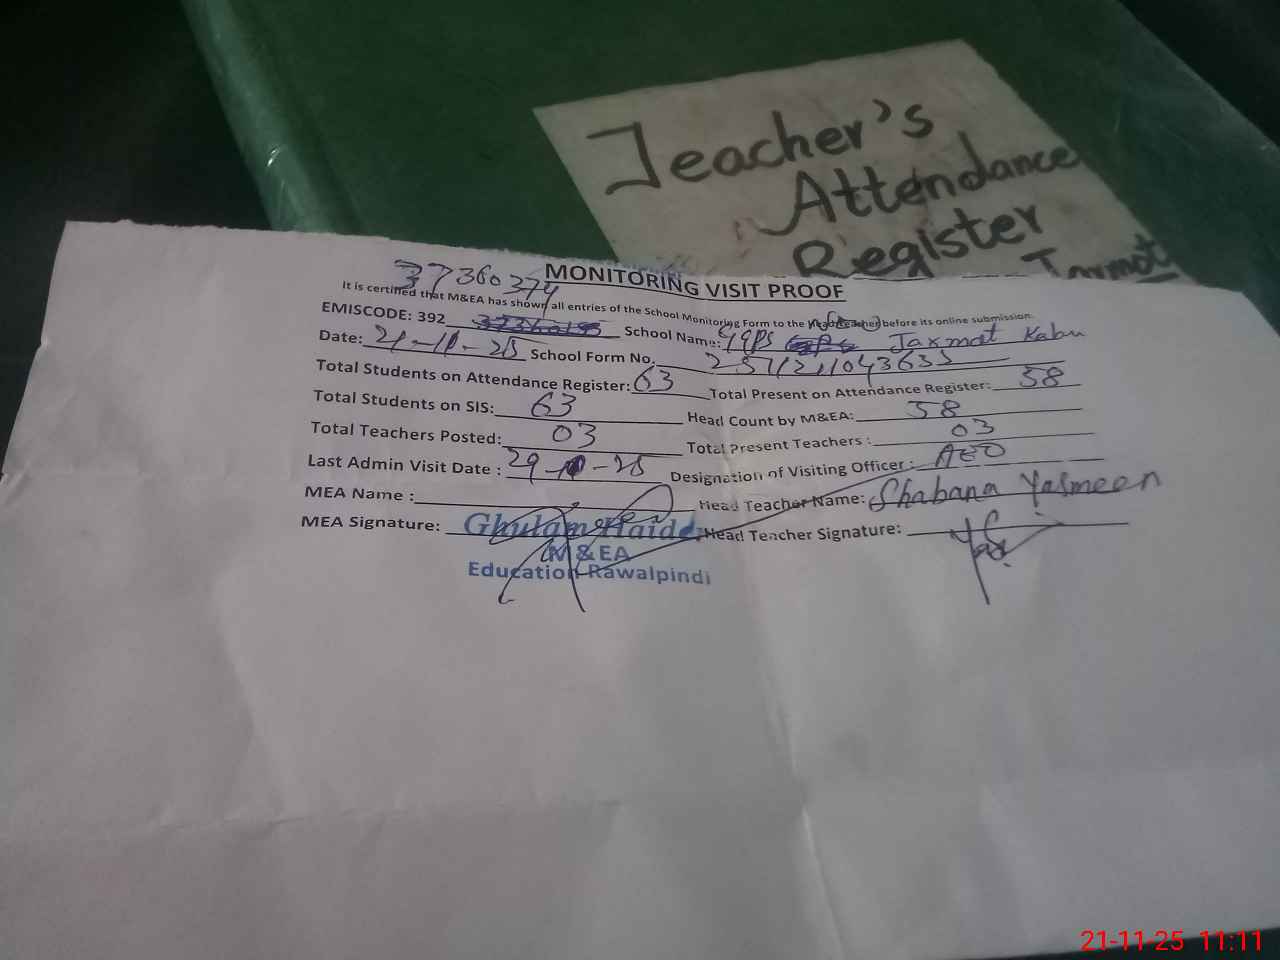 Teacher's
Attendance
Register
MONITORING VISIT PROOF
37360374
It is certified that M&EA has shown all entries of the School Monitoring Form to the Head Teacher before its online submission.
EMISCODE: 392 School Name: GGPS Jaxmot Kabu
Date: 21-11-25 School Form No.
Total Students on Attendance Register: 63 Total Present on Attendance Register: 58
Total Students on SIS: 63 Head Count by M&EA: 58
Total Teachers Posted: 03 Total Present Teachers : 03
Last Admin Visit Date : 29- -25 Designation of Visiting Officer : AEO
MEA Name : Head Teacher Name: Shabana Yasmeen
MEA Signature: Ghulam Haider Head Teacher Signature:
M&EA
Education Rawalpindi
21-11-25 11:11